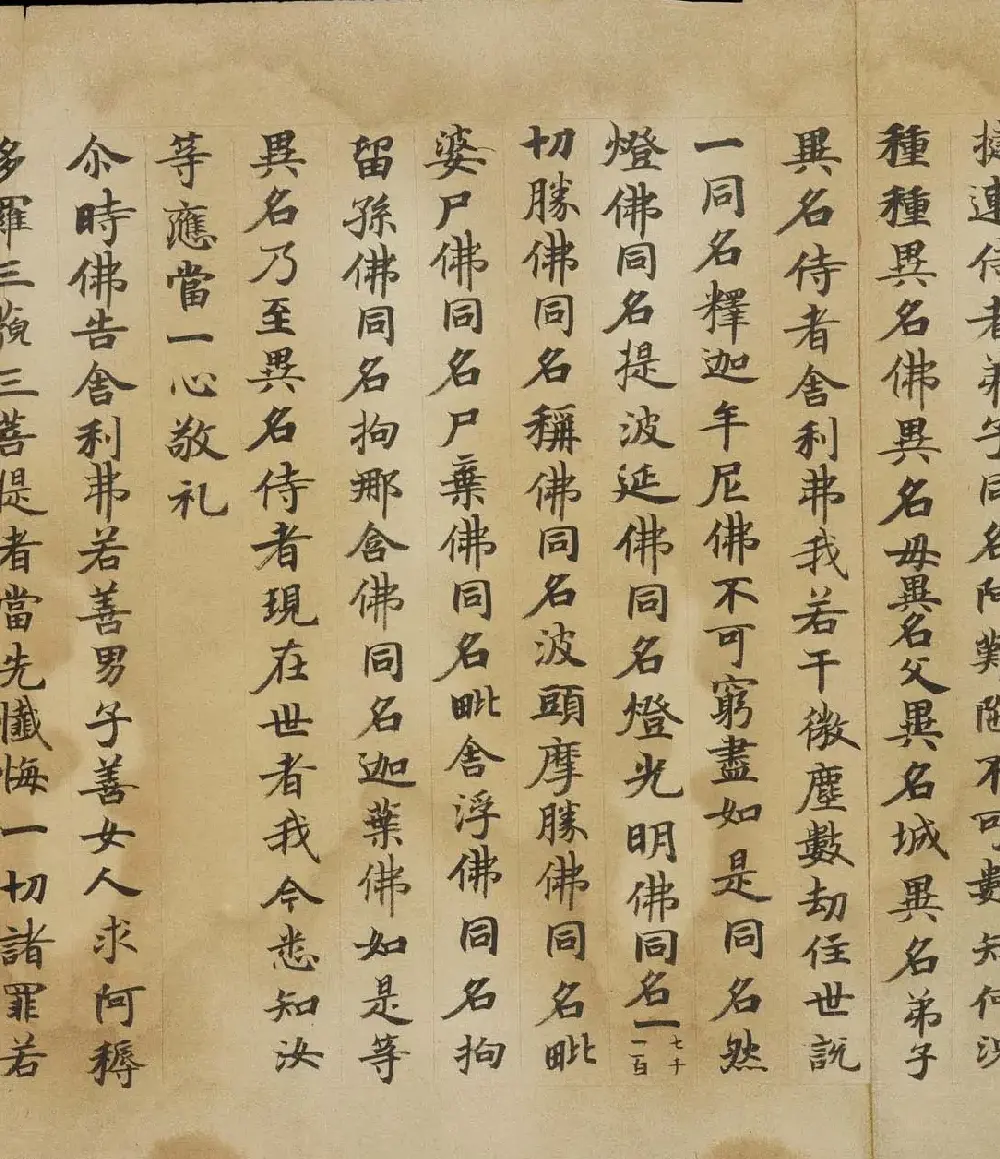 揵連侍者弟子同名阿難陁不可數知何況
種種異名佛異名母異名父異名城異名弟子
異名侍者舍利弗我若干微塵數劫住世説
一同名釋迦牟尼佛不可窮盡如是同名然
燈佛同名提波延佛同名燈光明佛同名一七千一百
切勝佛同名稱佛同名波頭摩勝佛同名毗
婆尸佛同名尸棄佛同名毗舍浮佛同名拘
留孫佛同名拘那含佛同名迦葉佛如是等
異名乃至異名侍者現在世者我今悉知汝
等應當一心敬礼
尒時佛告舍利弗若善男子善女人求阿耨
多羅三藐三菩提者當先懺悔一切諸罪若